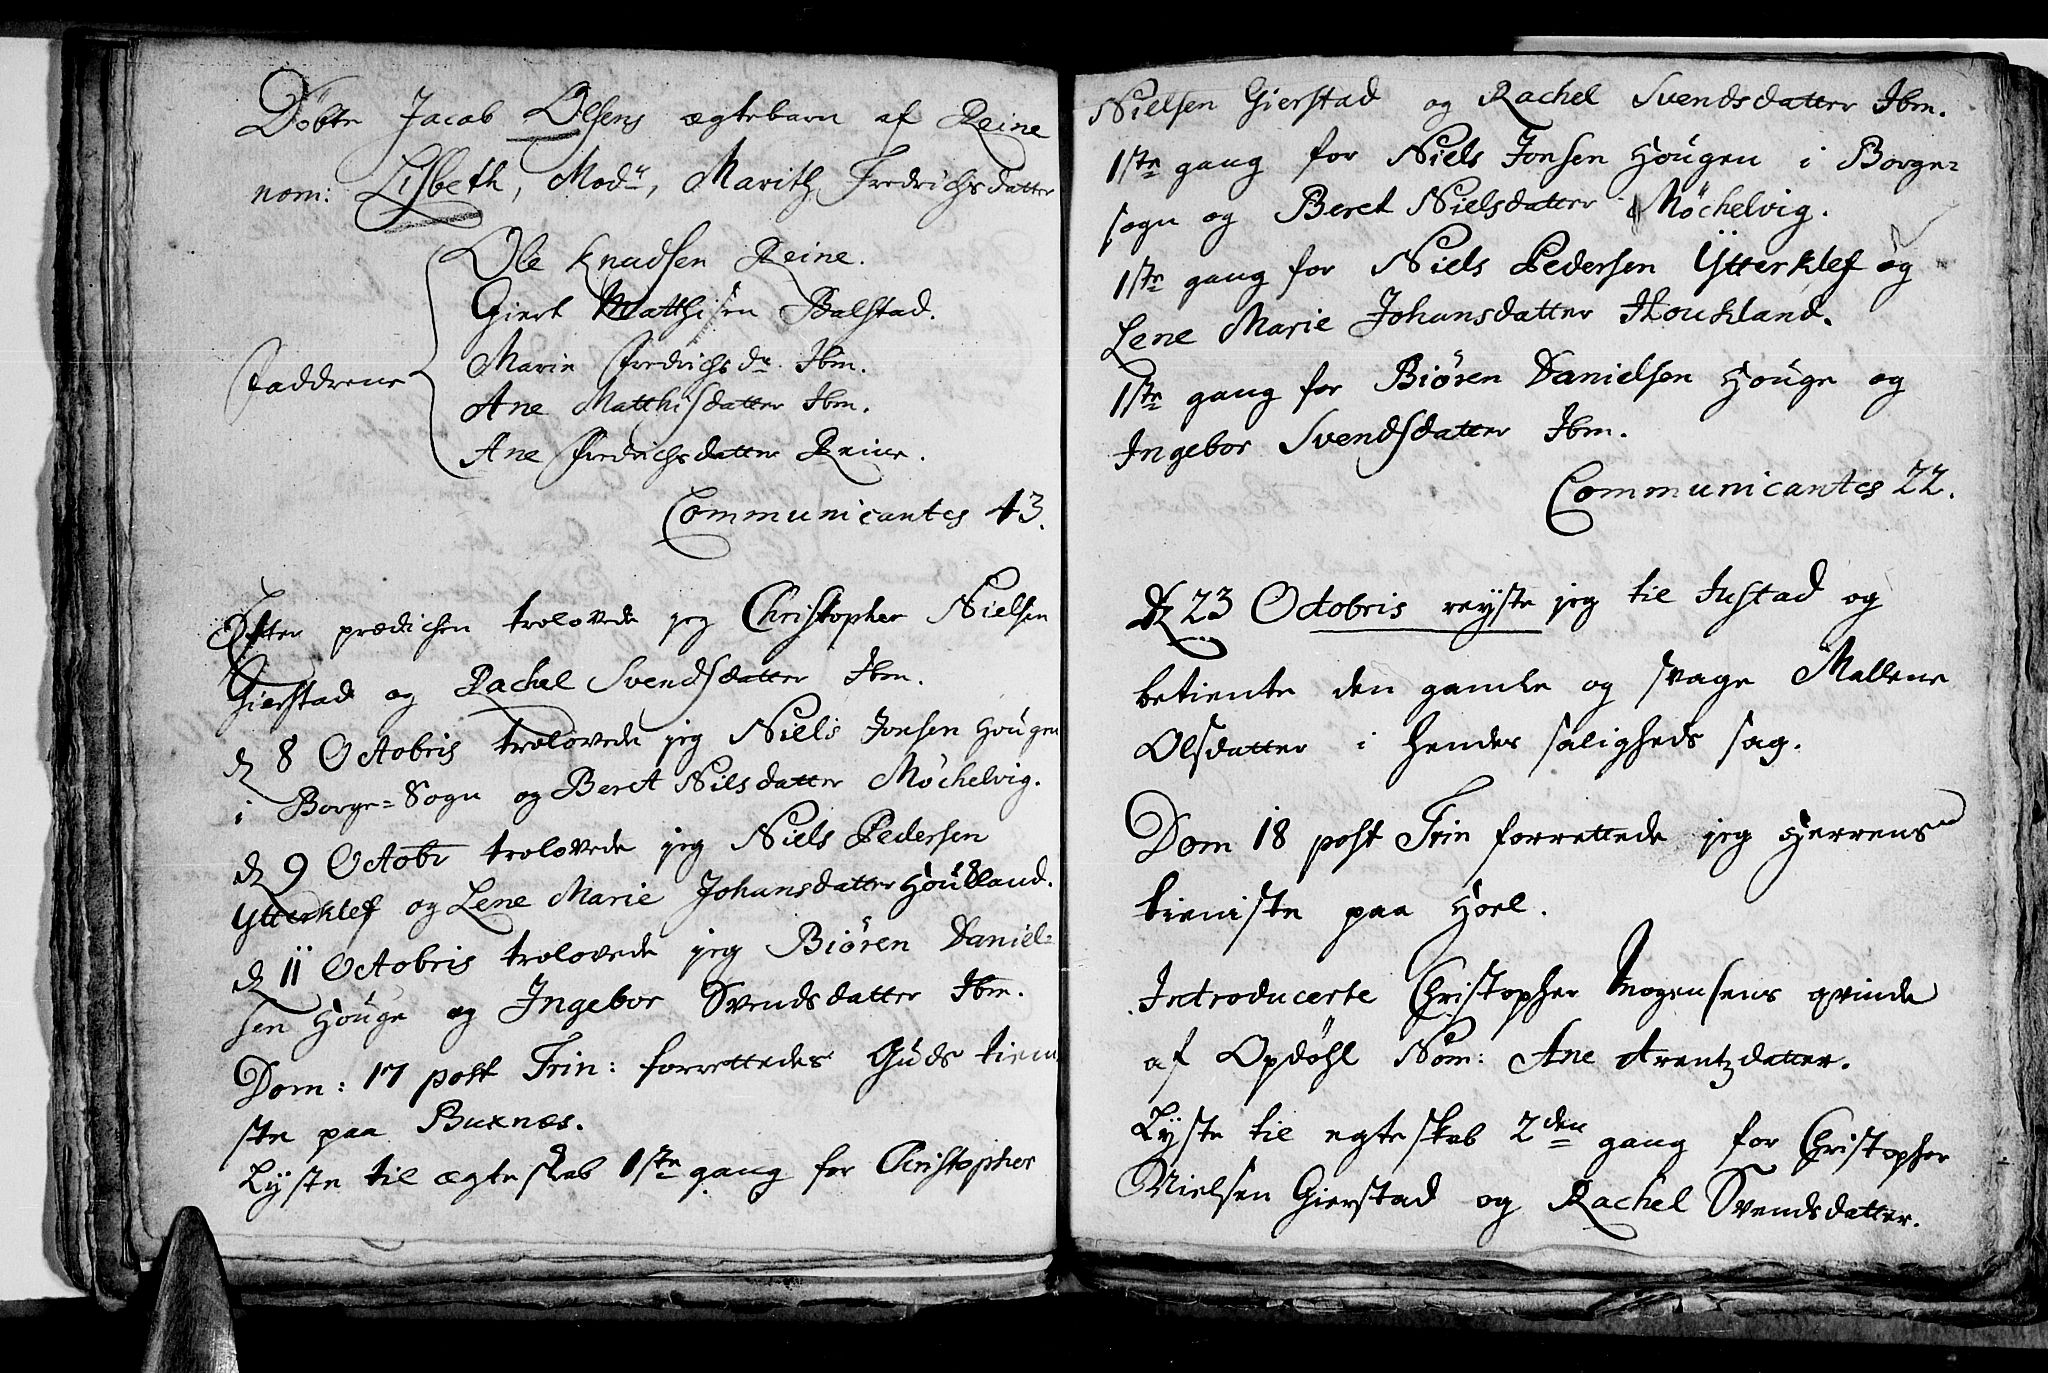 Döbte Jacob Olsens ægtebarn af Reine
nom: Lisbeth, Modr, Marith Fredrichsdatter
Ole Knudsen Reine.
Giert Matthisen Balstad.
Faddrene
Marin Fredrichs dr. Ibm.
Ane Matthisdatter Ibm.
Ane Fredrichsdatter Reine.
Communicantes 43.
Efter prædichen trolovede jeg Christopher Nielsen
Gierstad og Rachel Svendsdatter Ibm.
d 8 Octobris trolovede jeg Niels Jonsen Hougen
i Borge=Sogn og Beret Nilsdatter Möchelvig.
d 9 Octobr trolovede jeg Niels Pedersen
Ytterklef og Lene Marie Johansdatter Houkland.
d 11 Octobris trolovede jeg Biören Daniel=
sen Houge og Ingebor Svendsdatter Ibm.
Dom: 17 post Trin: forrettedes Guds tieni
ste paa Buxnæs.
Lyste til ægteskab 1ste gang for Christopher
Nielsen Gierstad og Rachel Svendsdatter Ibm.
1ste gang for Niels Jonsen Hougen i Borge=
sogn og Beret Nielsdatter Möchelvig.
1ste gang for Niels Pedersen Ytterklef og
Lene Marie Johansdatter Houkland.
1ste gang for Biören Danielsen Houge og
Ingebor Svendsdatter Ibm.
Communicantes 22.
d 23 Octobris reyste jeg til Justad og
betiente den gamle og svage Mallene
Olsdatter i hendes saligheds sag.
Dom 18 post Trin forrettede jeg Herrens
tieniste paa Hoel.
Introducerte Christopher Mogensens qvinde
af Opdöhl Nom: Ane Arentzdatter.
Lyste til egteskab 2den gang for Christopher
Nielsen Gierstad og Rachel Svendsdatter.